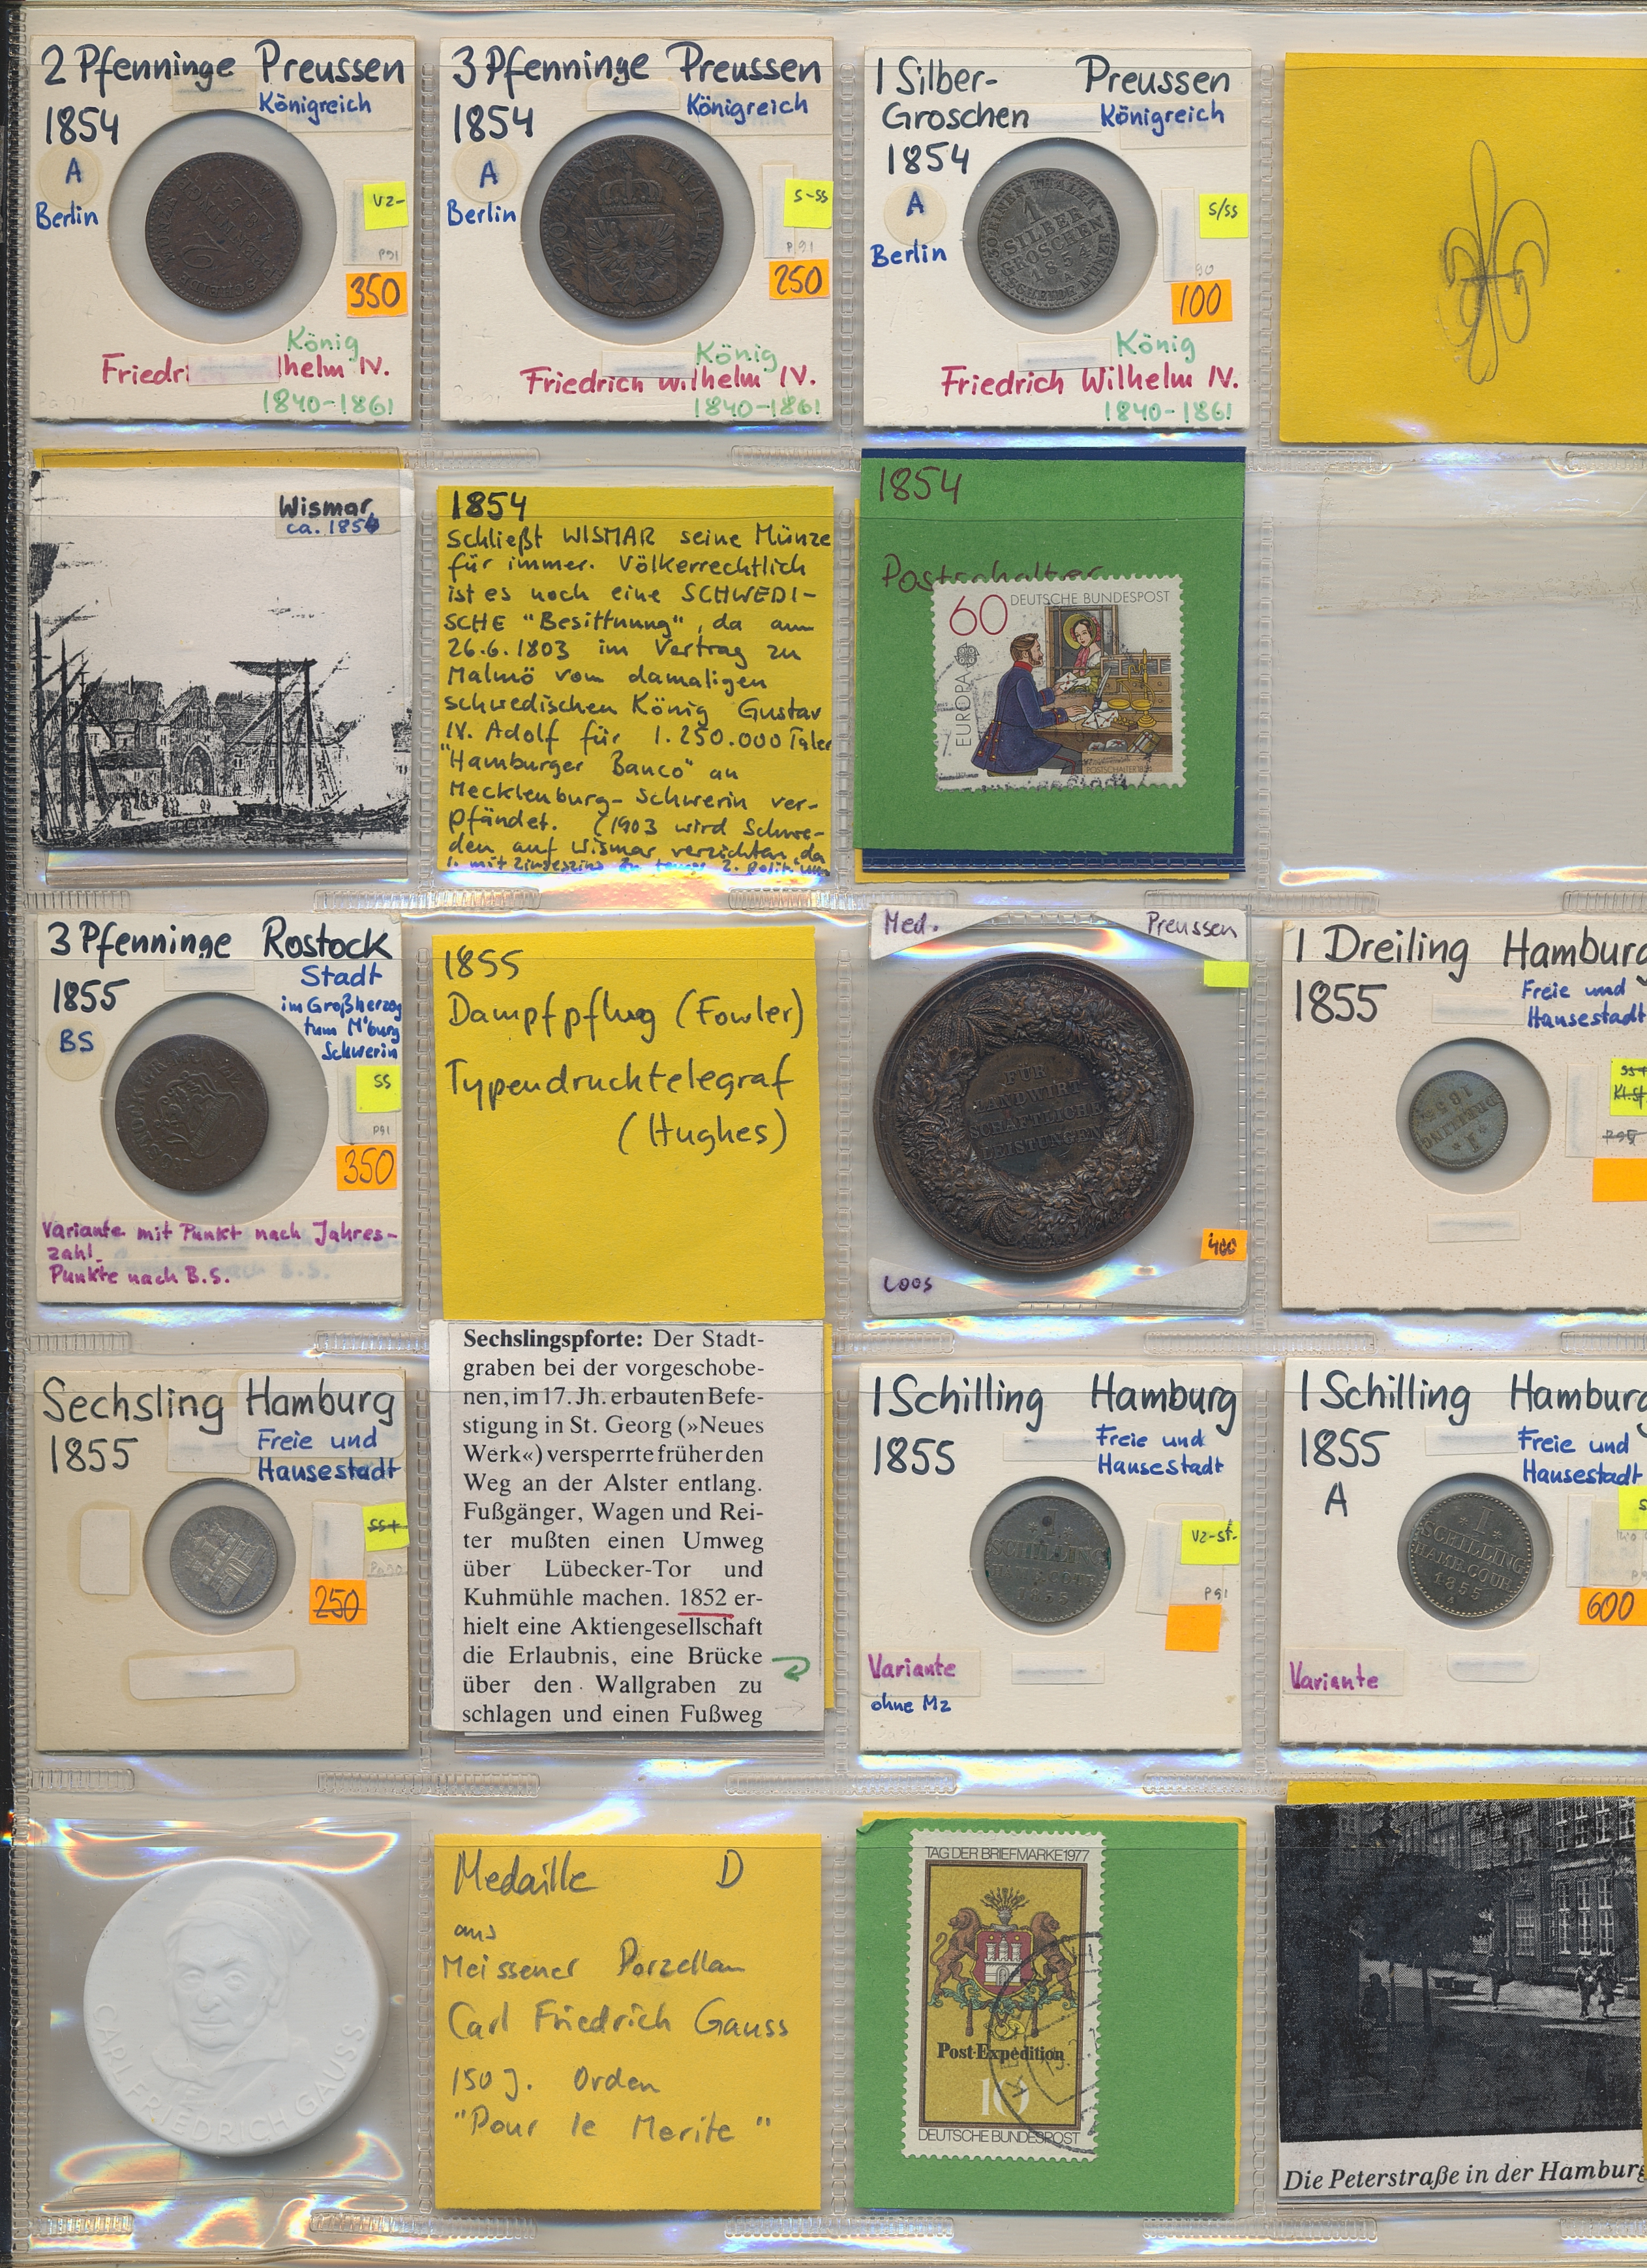 2 Pfenninge Preussen
Königreich
1854
A
Berlin
VZ-
P91
350
König
Friedri lhelm IV.
1840-1861
3 Pfenninge Preussen
Königreich
1854
A
Berlin
S-SS
P.91
250
König
Friedrich Wilhelm IV.
1840-1861
1 Silber- Preussen
Groschen Königreich
1854
A
Berlin
S/SS
90
100
1
SILBER
GROSCHEN
185
A
König
Friedrich Wilhelm IV.
1840-1861
Wismar
ca. 1854
1854
schließt WISMAR seine Münze
für immer. Völkerrechtlich
ist es noch eine SCHWEDI-
SCHE "Besittnung", da am
26.6.1803 im Vertrag zu
Malmö vom damaligen
schwedischen König Gustav
IV. Adolf für 1.250.000 Taler
"Hamburger Banco" an
Mecklenburg-Schwerin ver-
pfändet. (1903 wird Schwe-
den auf Wismar verzichten, da
1854
Postschalter
60 DEUTSCHE BUNDESPOST
EUROPA
POSTSCHALTER 1854
3 Pfenninge Rostock
Stadt
im Großherzog
tum M'burg
Schwerin
1855
BS
SS
P91
350
Variante mit Punkt nach Jahres-
zahl
Punkte nach B.S.
1855
Dampfpflug (Fowler)
Typendrucktelegraf
(Hughes)
Med. Preussen
FÜR
LANDWIRT
SCHAFTLICHE
LEISTUNGEN
400
Loos
1 Dreiling Hamburg
1855
Freie und
Hansestadt
SS+
Kl.Sf
P95
1
DREILING
1855
Sechsling Hamburg
1855
Freie und
Hansestadt
SS+
250
Sechslingspforte: Der Stadt-
graben bei der vorgeschobe-
nen, im 17. Jh. erbauten Befe-
stigung in St. Georg (»Neues
Werk«) versperrte früher den
Weg an der Alster entlang.
Fußgänger, Wagen und Rei-
ter mußten einen Umweg
über Lübecker-Tor und
Kuhmühle machen. 1852 er-
hielt eine Aktiengesellschaft
die Erlaubnis, eine Brücke
über den Wallgraben zu
schlagen und einen Fußweg
1 Schilling Hamburg
1855
Freie und
Hansestadt
VZ-st-
P91
I
SCHILLING
Variante
ohne Mz
1 Schilling Hamburg
1855
Freie und
Hansestadt
A
600
I
SCHILLING
HAMB. COUR.
1855
A
Variante
CARL FRIEDRICH GAUSS
Medaille D
aus
Meissener Porzellan
Carl Friedrich Gauss
150 J. Orden
"Pour le Merite"
TAG DER BRIEFMARKE 1977
Post-Expedition
10
DEUTSCHE BUNDESPOST
Die Peterstraße in der Hamburg